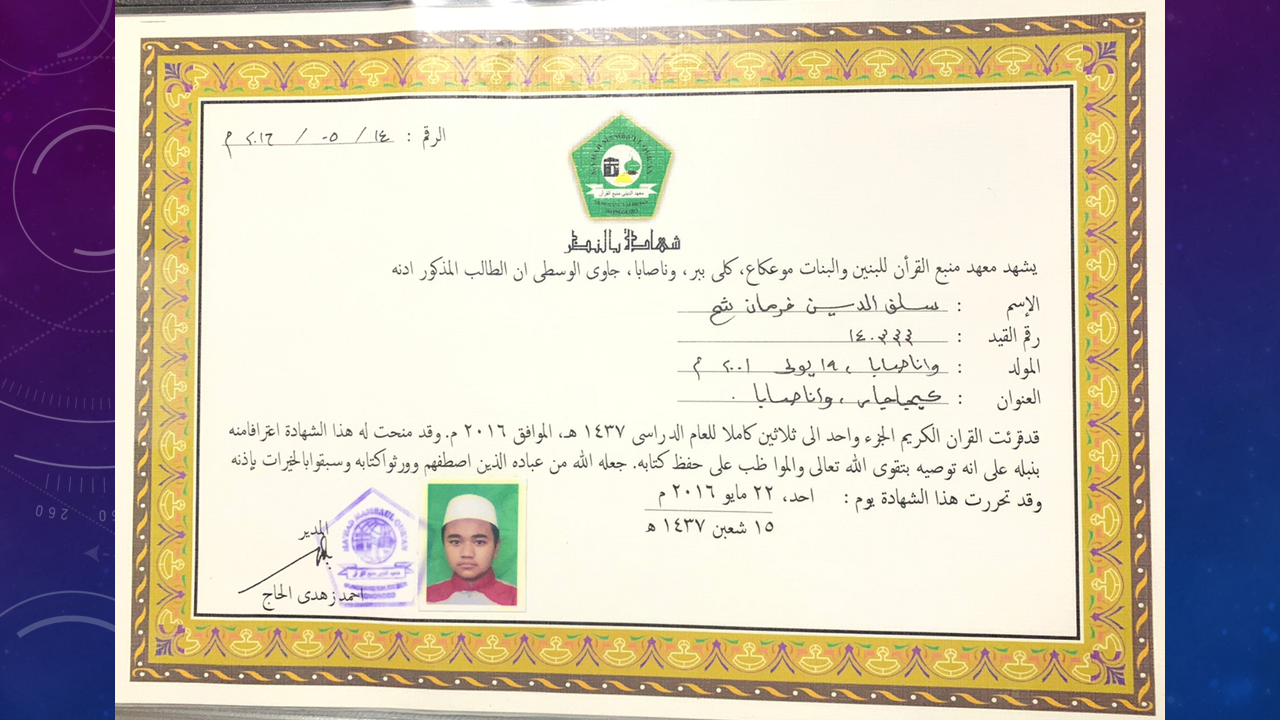 الرقم : ١٤ / ٠٥ / ٢٠١٦ م
معهد الدينى منبع القرأن
شهادة بالنظر
يشهد معهد منبع القرأن للبنين والبنات موعكاع، كلى ببر، وناصابا، جاوى الوسطى ان الطالب المذكور ادنه
الإسم : سلف الدين فرمان شح
رقم القيد : ١٤٠٣٣٣
المولد : واناصابا ، ١٩ يولى ٢٠٠١ م
العنوان : واناصابا
قدقرئت القران الكريم الجزء واحد الى ثلاثين كاملا للعام الدراسى ١٤٣٧ هـ، الموافق ٢٠١٦ م. وقد منحت له هذا الشهادة اعترافامنه
بنبله على انه توصيه بتقوى الله تعالى والموا ظب على حفظ كتابه. جعله الله من عباده الذين اصطفهم وورثواكتابه وسبقوابالخيرات بإذنه
وقد تحررت هذا الشهادة يوم : احد، ٢٢ مايو ٢٠١٦ م
١٥ شعبن ١٤٣٧ ه
المدير
MA'HAD MAMBAUL QUR'AN
احمد زهدى الحاج
260